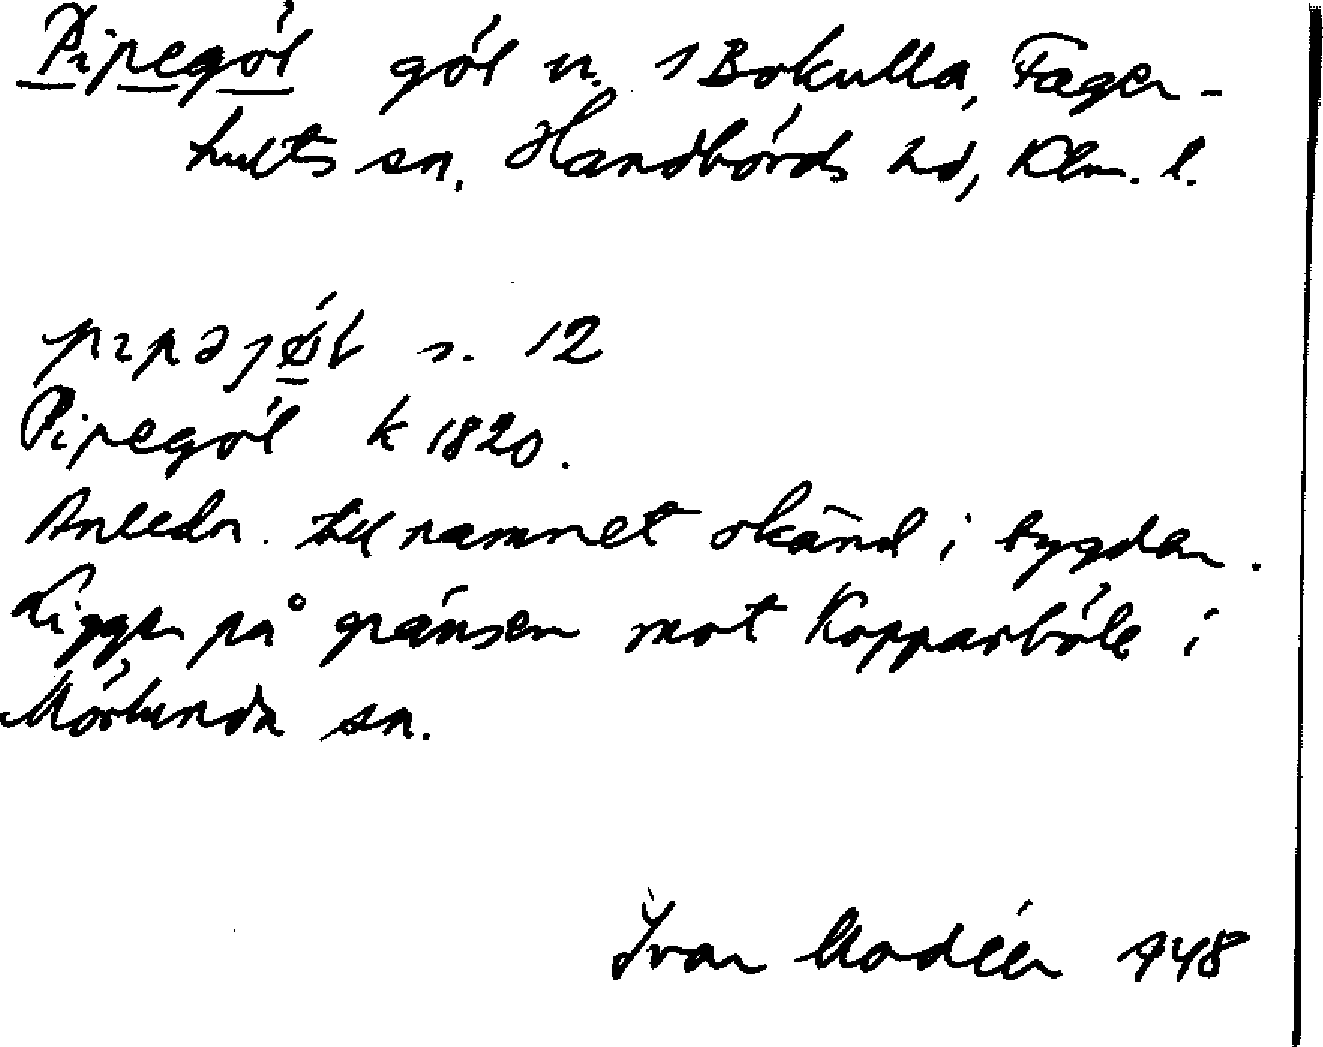 Pipegöl göl n. s Bokulla, Fager-
hults sn. Handbörds hd, Klm. l.
pɪpəjøl s. 12
Pipegöl k 1820.
Anledn. till namnet okänd i bygden.
Ligger på gränsen mot Kopparböle i
Mörlunda sn.
Ivar Modéer 1948